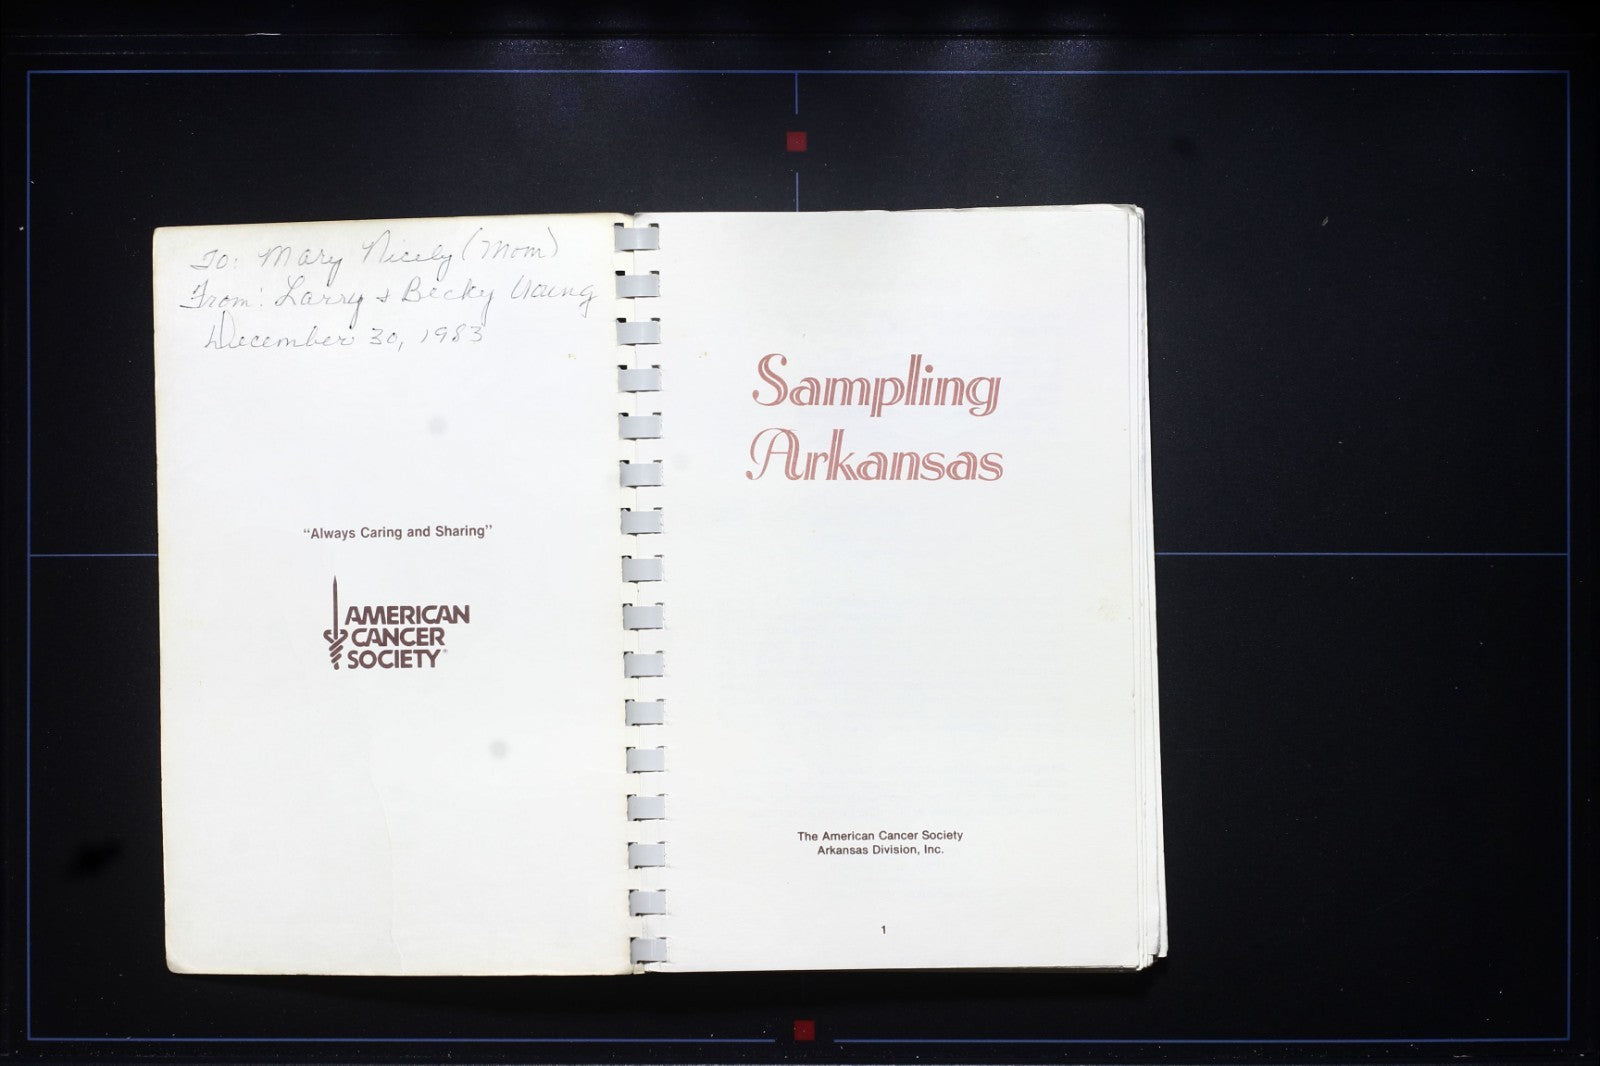 To: Mary Nicely (Mom)
From: Larry & Becky Young
December 30, 1983
"Always Caring and Sharing"
AMERICAN
CANCER
SOCIETY®
Sampling
Arkansas
The American Cancer Society
Arkansas Division, Inc.
1